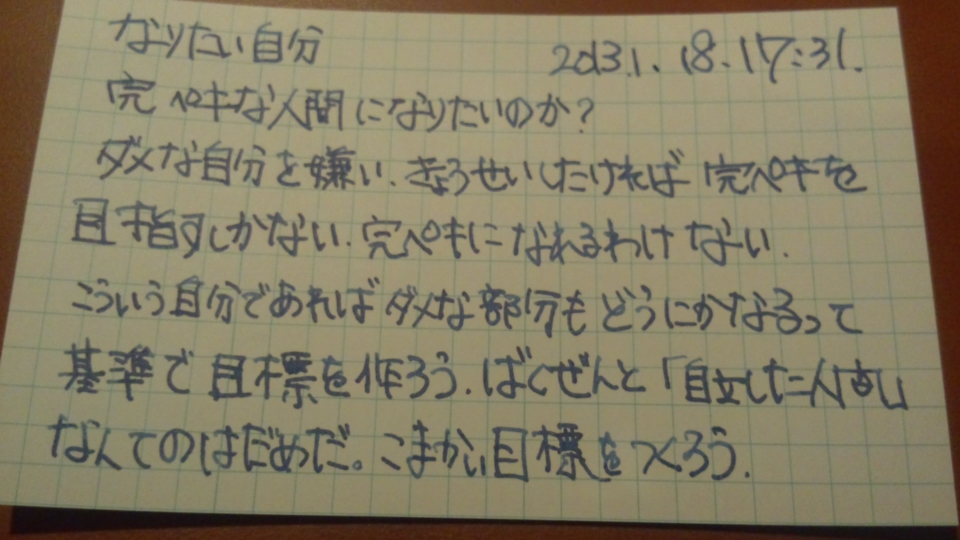 なりたい自分 2013.1.18.17:31.
完ペキな人間になりたいのか?
ダメな自分を嫌い.きょうせいしたければ完ペキを
目指すしかない.完ペキになれるわけない.
こういう自分であればダメな部分もどうにかなるって
基準で目標を作ろう.ばくぜんと「自立した
なんてのはだめだ。こまかい目標をつくろう.